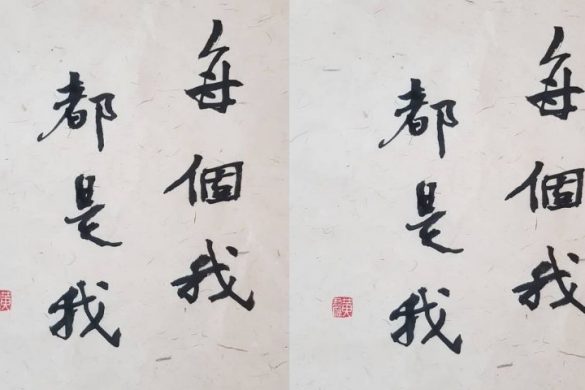 每個我
都是我
每個我
都是我